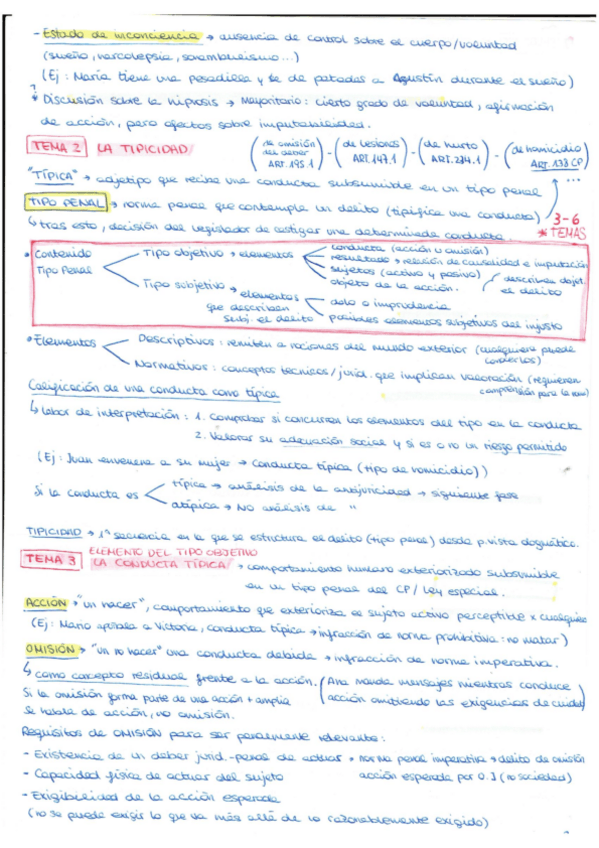 - Estado de inconciencia → ausencia de control sobre el cuerpo/voluntad
(sueño, narcolepsia, sonambulismo...)
(Ej: María tiene una pesadilla y le da patadas a Agustín durante el sueño)
* Discusión sobre la hipnosis → Mayoritario: cierto grado de voluntad, afirmación
de acción, pero efectos sobre imputabilidad.
TEMA 2 LA TIPICIDAD
(de omisión del deber ART. 195.1) - (de lesiones ART. 147.1) - (de hurto ART. 234.1) - (de homicidio ART. 138 CP) ...
"TÍPICA" → adjetivo que recibe una conducta subsumible en un tipo penal
TIPO PENAL → norma penal que contempla un delito (tipifica una conducta)
↳ tras esto, decisión del legislador de castigar una determinada conducta.
3-6
* TEMAS
• Contenido Tipo Penal
Tipo objetivo → elementos
conducta (acción u omisión)
resultado → relación de causalidad e imputación
sujetos (activo y pasivo)
objeto de la acción.
describen objet. el delito
Tipo subjetivo → elementos que describen subj. el delito
dolo o imprudencia
posibles elementos subjetivos del injusto
• Elementos
Descriptivos: remiten a nociones del mundo exterior (cualquiera puede
conocerlos)
Normativos: conceptos técnicos/juríd. que implican valoración (requieren
comprensión para la
Calificación de una conducta como típica
↳ labor de interpretación: 1. Comprobar si concurren los elementos del tipo en la conducta
2. Valorar su adecuación social y si es o no un riesgo permitido
(Ej: Juan envenena a su mujer → Conducta típica (tipo de homicidio))
Si la conducta es
típica → análisis de la antijuricidad → siguiente fase
atípica → No análisis de "
TIPICIDAD → 1ª secuencia en la que se estructura el delito (tipo penal) desde p. vista dogmático.
TEMA 3 ELEMENTO DEL TIPO OBJETIVO
LA CONDUCTA TÍPICA → comportamiento humano exteriorizado subsumible
en un tipo penal del CP / Ley especial.
ACCIÓN → "un hacer", comportamiento que exterioriza el sujeto activo perceptible x cualquiera
(Ej: Mario apuñala a Victoria, conducta típica → infracción de norma prohibitiva: no matar)
OMISIÓN → "un no hacer" una conducta debida → infracción de norma imperativa.
↳ como concepto residual frente a la acción. (Ana manda mensajes mientras conduce
Si la omisión forma parte de una acción + amplia
acción omitiendo las exigencias de cuidado)
Se habla de acción, no omisión.
Requisitos de OMISIÓN para ser penalmente relevante:
- Existencia de un deber juríd.-penal de actuar → norma penal imperativa → delito de omisión
- Capacidad física de actuar del sujeto
acción esperada por O.J (no sociedad)
- Exigibilidad de la acción esperada
(no se puede exigir lo que va más allá de lo razonablemente exigido)